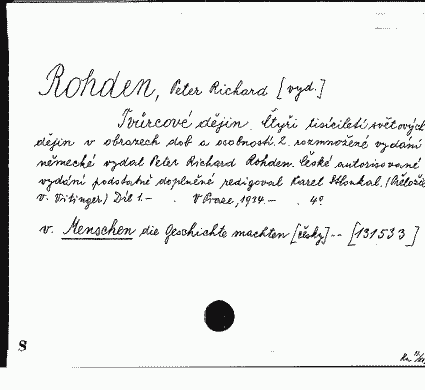 Rohden, Peter Richard [vyd.]
Tvůrcové dějin. Čtyři tisíciletí světových
dějin v obrazech dob a osobností. 2. rozmnožené vydání
německé vydal Peter Richard Rohden. České autorisované
vydání podstatně doplněné redigoval Karel Stloukal. (Přeložil
V. Vitinger) Díl 1.- . V Praze, 1934.- . 4°
v. Menschen die Geschichte machten [česky] -- [131533]
8